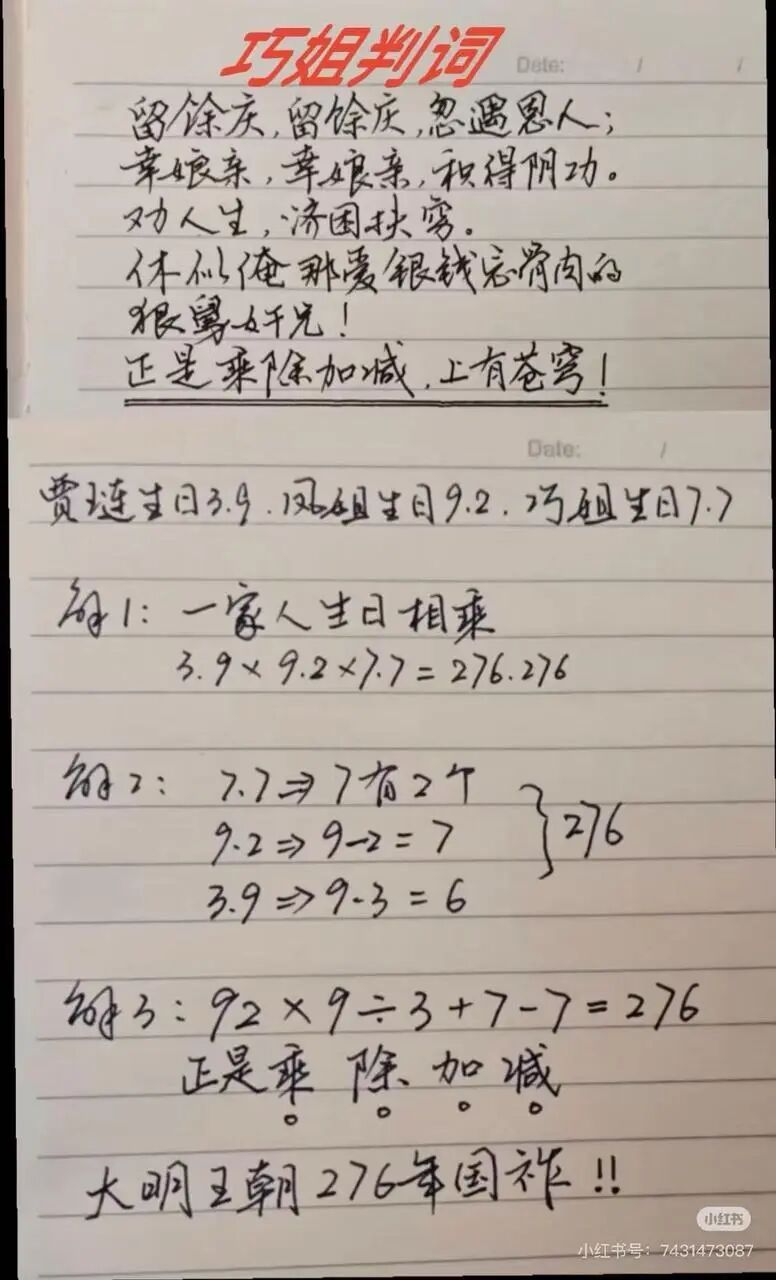 巧姐判词
Date: / /
留馀庆,留馀庆,忽遇恩人;
幸娘亲,幸娘亲,积得阴功。
劝人生,济困扶穷。
休似俺那爱银钱忘骨肉的
狠舅奸兄!
正是乘除加减,上有苍穹!
Date: /
贾琏生日3.9.凤姐生日9.2.巧姐生日7.7
解1: 一家人生日相乘
3.9×9.2×7.7=276.276
解2: 7.7⇒7有2个
9.2⇒9-2=7 } 276
3.9⇒9-3=6
解3: 92×9÷3+7-7=276
正是乘 除 加 减
大明王朝276年国祚!!
小红书
小红书号: 7431473087